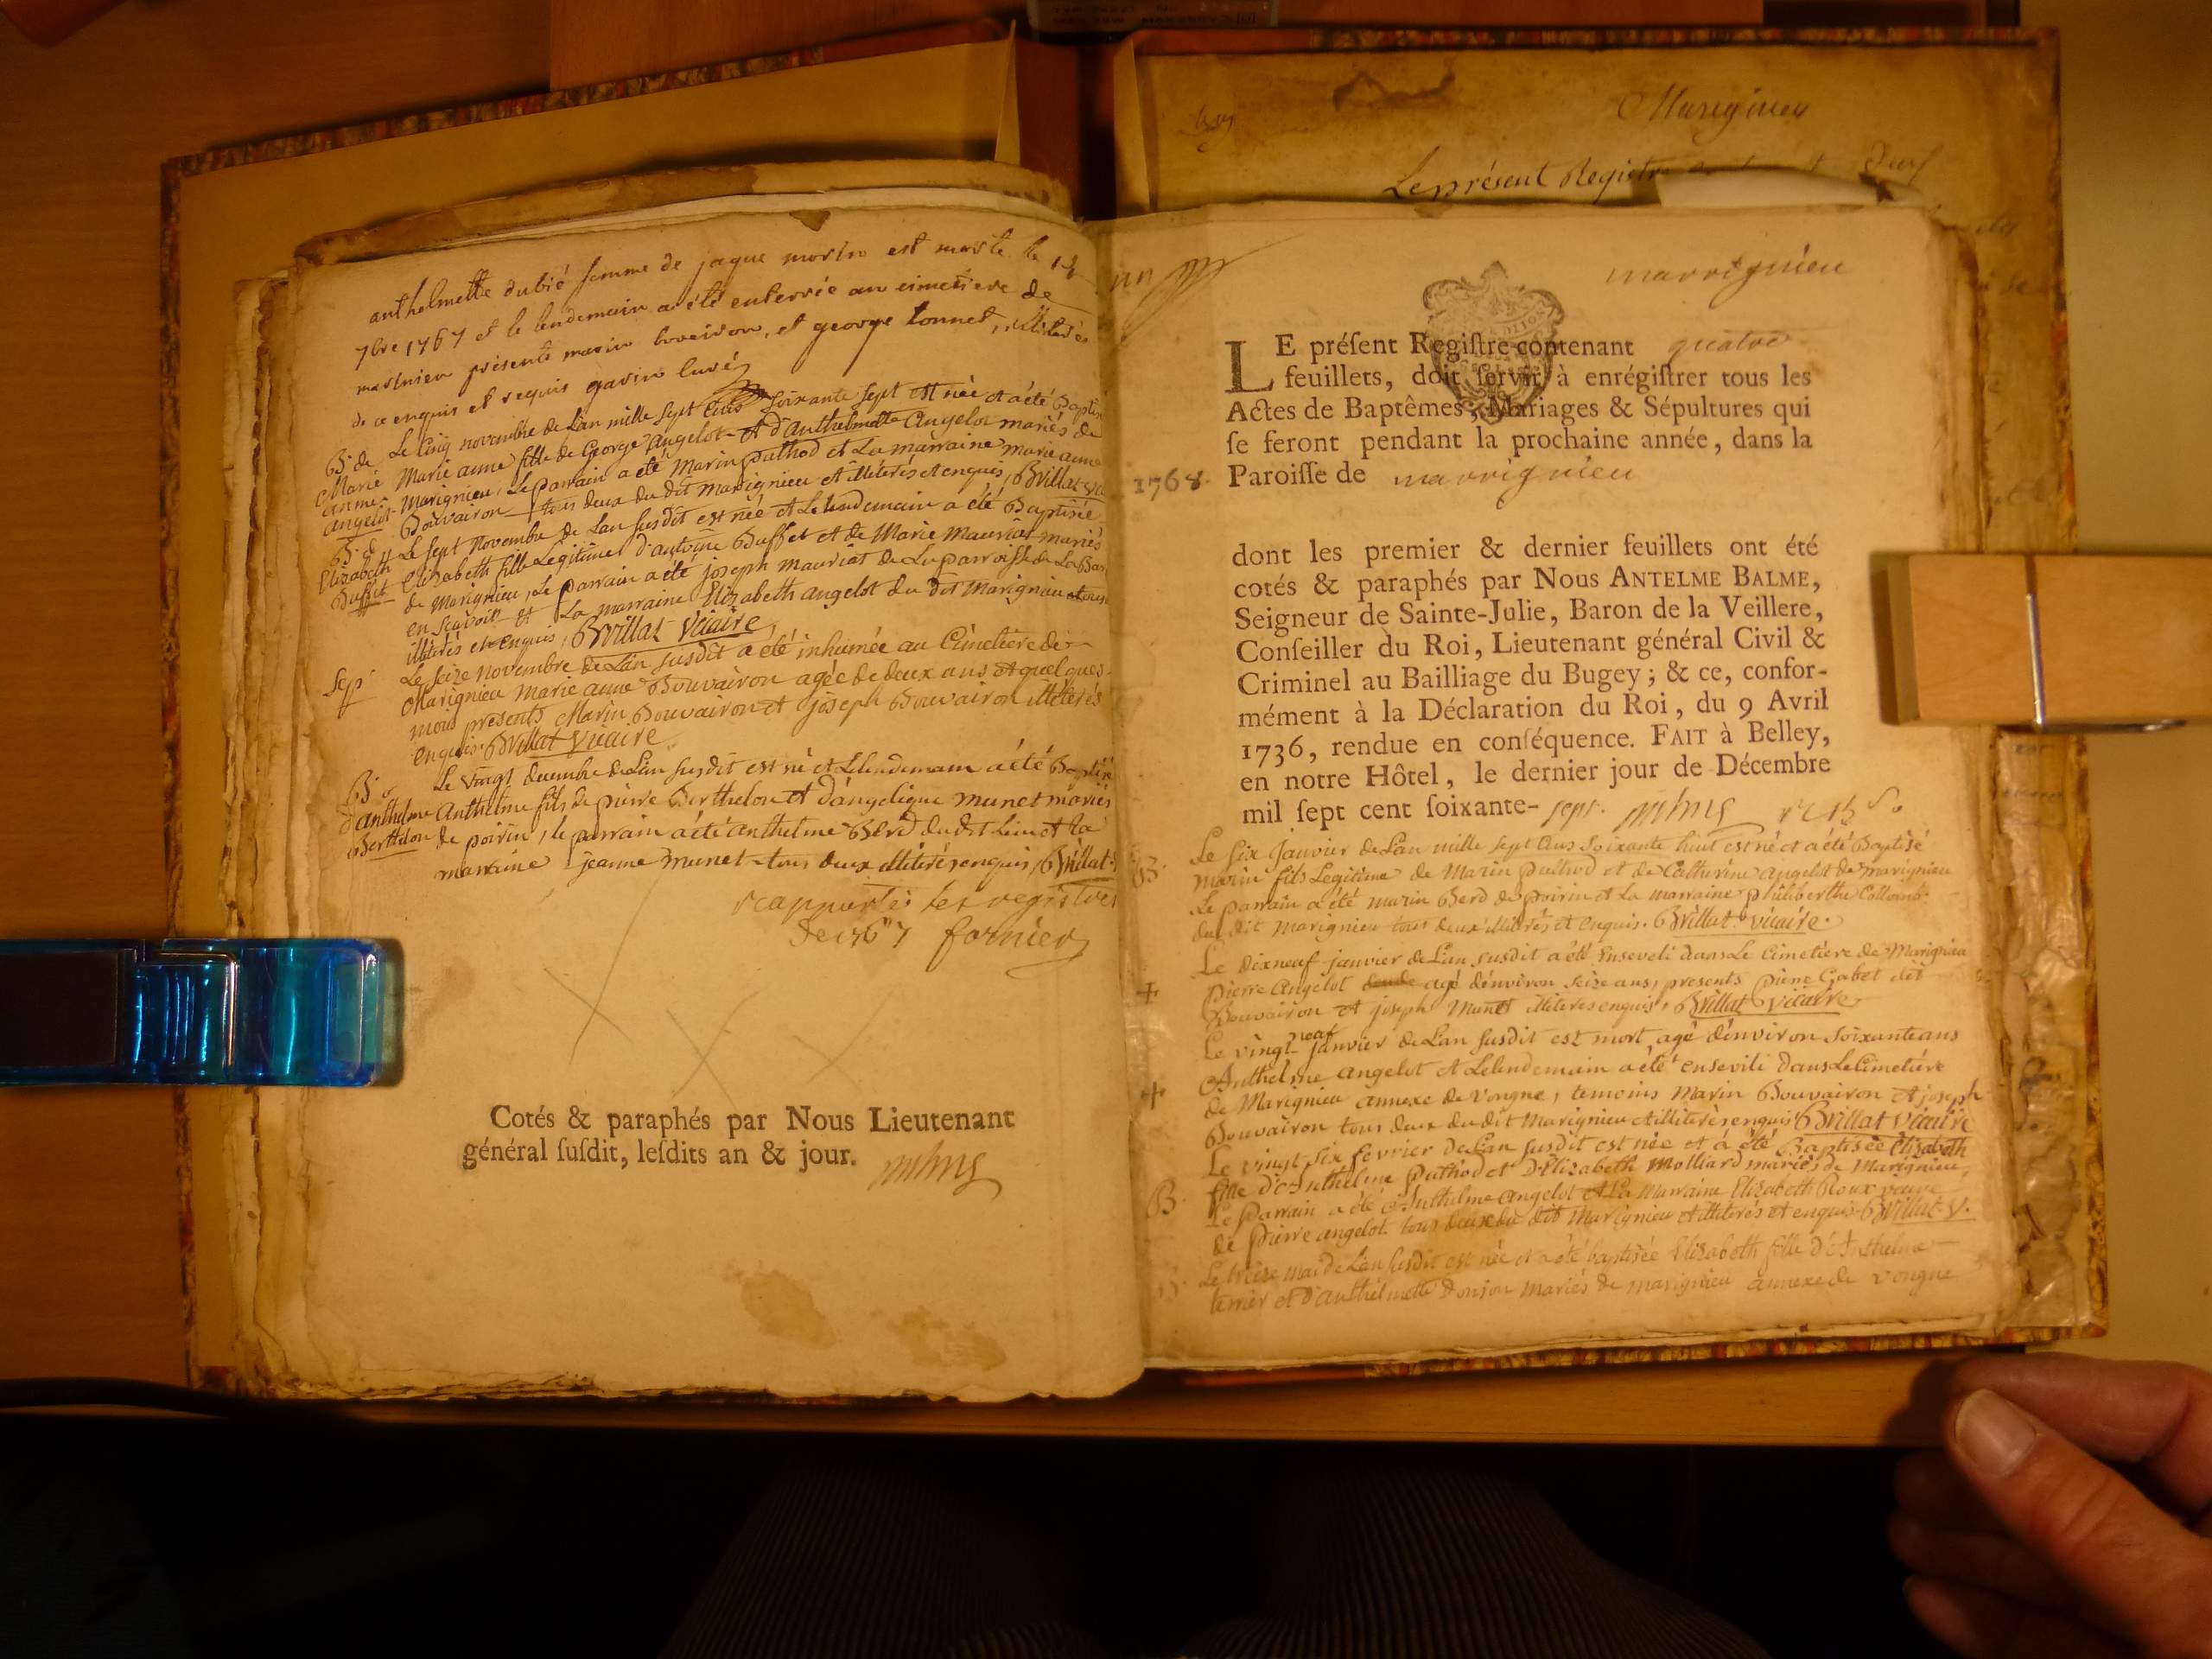 anthelmette dubié femme de jaque morin est morte le
7bre 1767 et le lendemain a été enterrée au cimetiere de
marinieu présents marin boveiron, et george tonnet, illiterés
de ce enquis et requis gavin curé
Le Cinq novembre de Lan mille sept Cens soixante sept est née et a été Baptisée
B. de Marie anne angelot
Marie anne fille de George angelot et d'anthelmette Angelot mariés de
Marignieu, Le parrain a été Marin puthod et La marraine marie anne
Bouvairon tous deux du dit Marignieu et illiterés et enquis, Brillat
Le sept Novembre de Lan susdit est née et Lelendemain a été Baptisée
B. d' Elizabeth Buffet
Elizabeth fille Legitime d'antoine Buffet et de Marie Mauriat mariés
de Marignieu, Le parrain a été joseph mauriat de La parroisse de
et La marraine Elizabeth angelot du dit Marignieu
illiterés et enquis, Brillat Vicaire
Sep.
Le seize Novembre de Lan susdit a été inhumée au Cimetiere de
Marignieu Marie anne Bouvairon agée de deux ans et quelques
mois presents Marin Bouvairon et joseph Bouvairon illiterés
enquis. Brillat Vicaire
Le vingt decembre de Lan susdit est né et Lelendemain a été Baptisé
B. d'anthelme Berthelon
Anthelme fils de pierre Berthelon et d'angelique munet mariés
de poirin, le parrain a été anthelme Berd du dit lieu et la
marraine jeanne munet tous deux illiterés enquis, Brillat
rapporté les registres
de 1767 fornier
Cotés & paraphés par Nous Lieutenant
général susdit, lesdits an & jour.
Marignieu
Le présent Registre
marrignieu
LE présent Registre contenant quatre
feuillets, doit servir à enrégistrer tous les
Actes de Baptêmes, Mariages & Sépultures qui
se feront pendant la prochaine année, dans la
1768 Paroisse de marrignieu
dont les premier & dernier feuillets ont été
cotés & paraphés par Nous ANTELME BALME,
Seigneur de Sainte-Julie, Baron de la Veillere,
Conseiller du Roi, Lieutenant général Civil &
Criminel au Bailliage du Bugey; & ce, confor-
mément à la Déclaration du Roi, du 9 Avril
1736, rendue en conséquence. FAIT à Belley,
en notre Hôtel, le dernier jour de Décembre
mil sept cent soixante-sept.
Le six Janvier de Lan mille sept Cens soixante huit est né et a été Baptisé
B. marin fils Legitime de Marin puthod et de Catherine angelot de marignieu
Le parrain a été marin Berd de poirin et La marraine philiberthe Collomb
du dit Marignieu tous deux illiterés et enquis. Brillat vicaire.
Le dixneuf janvier de Lan susdit a été Enseveli dans Le Cimetière de Marignieu
+ Pierre Angelot agé d'environ seize ans, presents Pierre Gabet dit
Bouvairon et joseph Munet illiteres enquis, Brillat Vicaire
Le vingt neuf janvier de Lan susdit est mort agé d'environ soixante ans
Anthelme angelot et Lelendemain a été enseveli dans Le Cimetière
+ de Marignieu annexe de Vongne, temoins Marin Bouvairon et joseph
Bouvairon tous deux du dit Marignieu et illiterés enquis Brillat Vicaire
Le vingt six fevrier de Lan susdit est née et a été Baptisée Elizabeth
fille d'Anthelme Puthod et D'Elizabeth Molliard mariés de Marignieu,
B. Le parrain a été Anthelme angelot et La Marraine Elizabeth Roux veuve
de pierre angelot tous deux du dit Marignieu et illiterés et enquis Brillat V.
Le treize mai de Lan susdit est née et a été baptisée Elizabeth fille d'Anthelme
terrier et d'anthelmette Donjon mariés de marignieu annexe de vongne